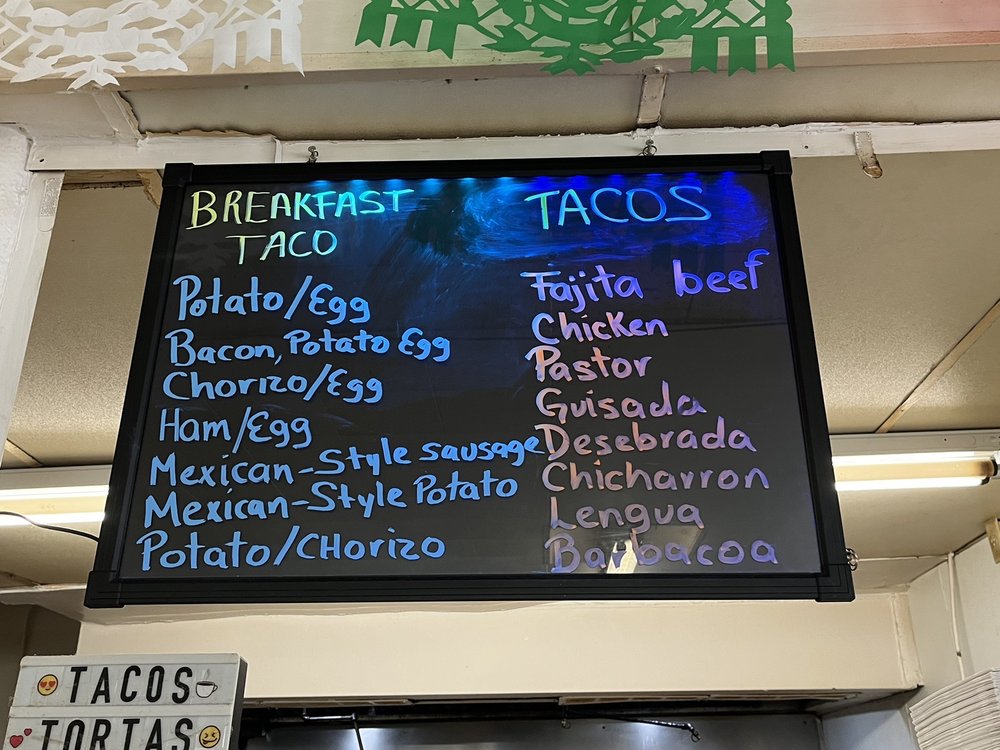 BREAKFAST
TACO
Potato/Egg
Bacon, Potato Egg
Chorizo/Egg
Ham/Egg
Mexican-Style sausage
Mexican-Style Potato
Potato/CHorizo
TACOS
Fajita beef
Chicken
Pastor
Guisada
Desebrada
Chicharron
Lengua
Barbacoa
TACOS
TORTAS